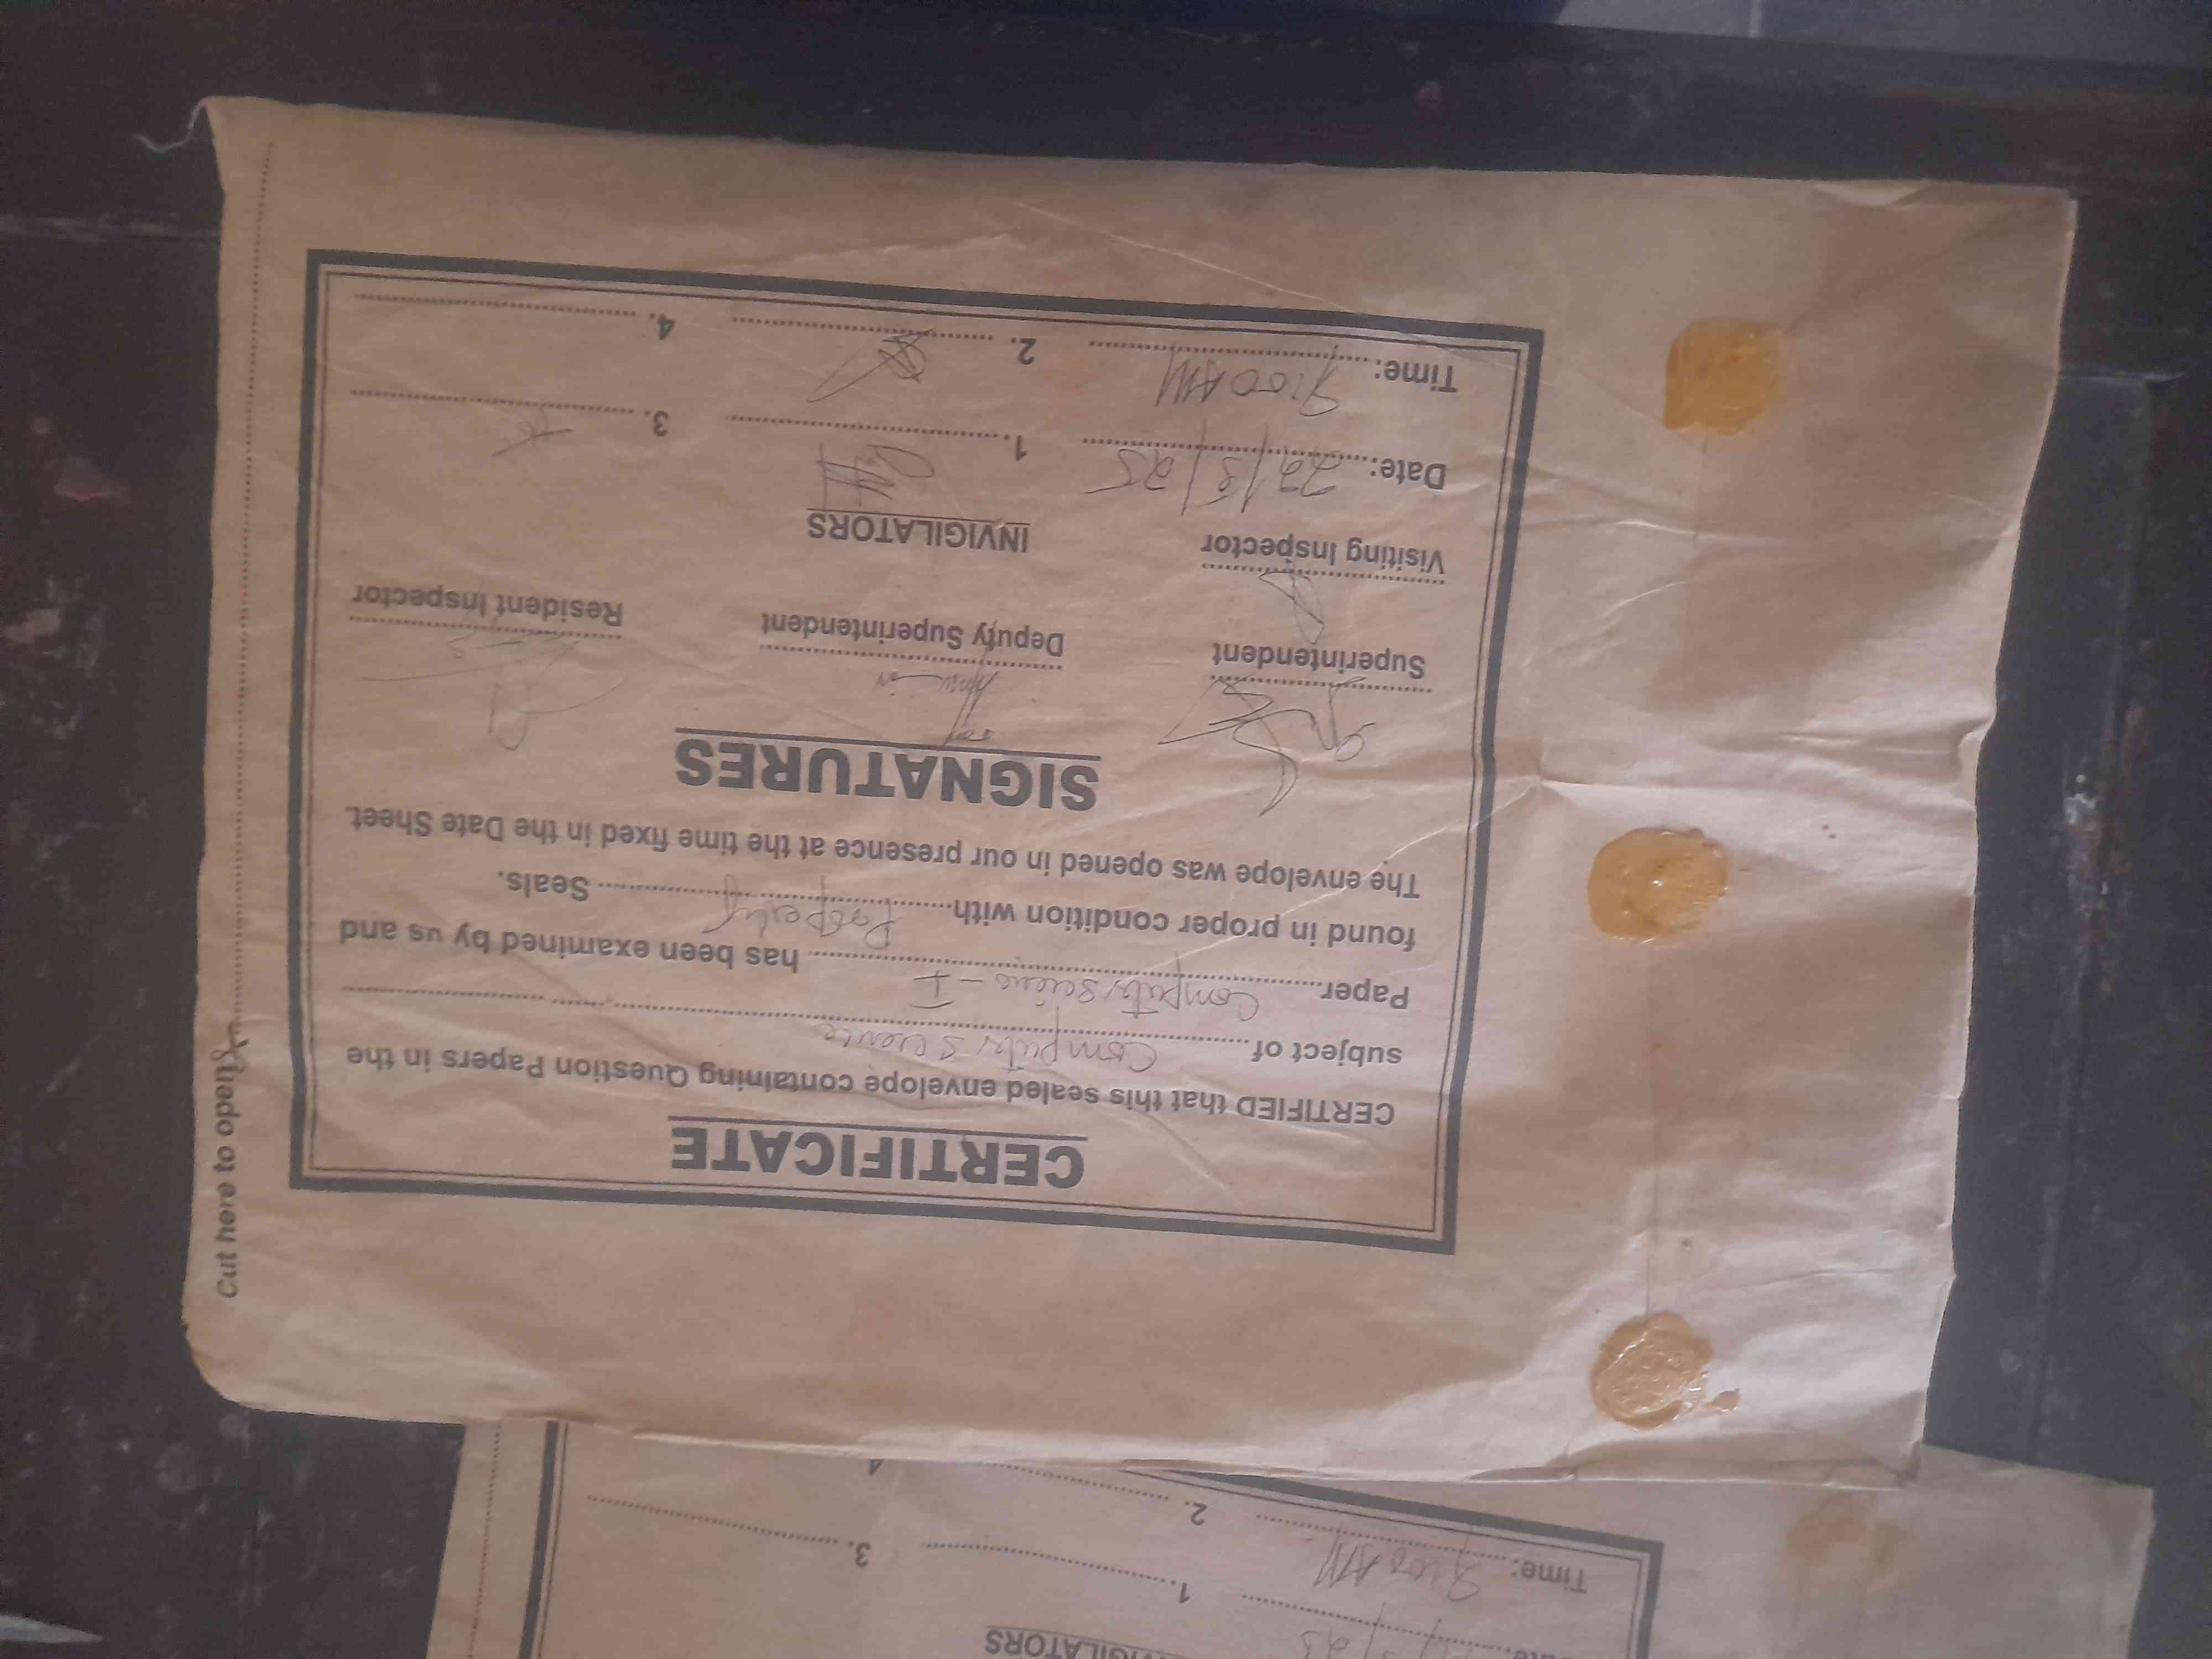 CERTIFICATE
CERTIFIED that this sealed envelope containing Question Papers in the
subject of Computer Science
Paper Computer Science - I has been examined by us and
found in proper condition with Properly Seals.
The envelope was opened in our presence at the time fixed in the Date Sheet.
SIGNATURES
Superintendent Deputy Superintendent Resident Inspector
Visiting Inspector INVIGILATORS
Date: 22/3/25 1. 3.
Time: 9:00 AM 2. 4.
Cut here to open
INVIGILATORS
1. 3.
Time: 9:00 AM 2. 4